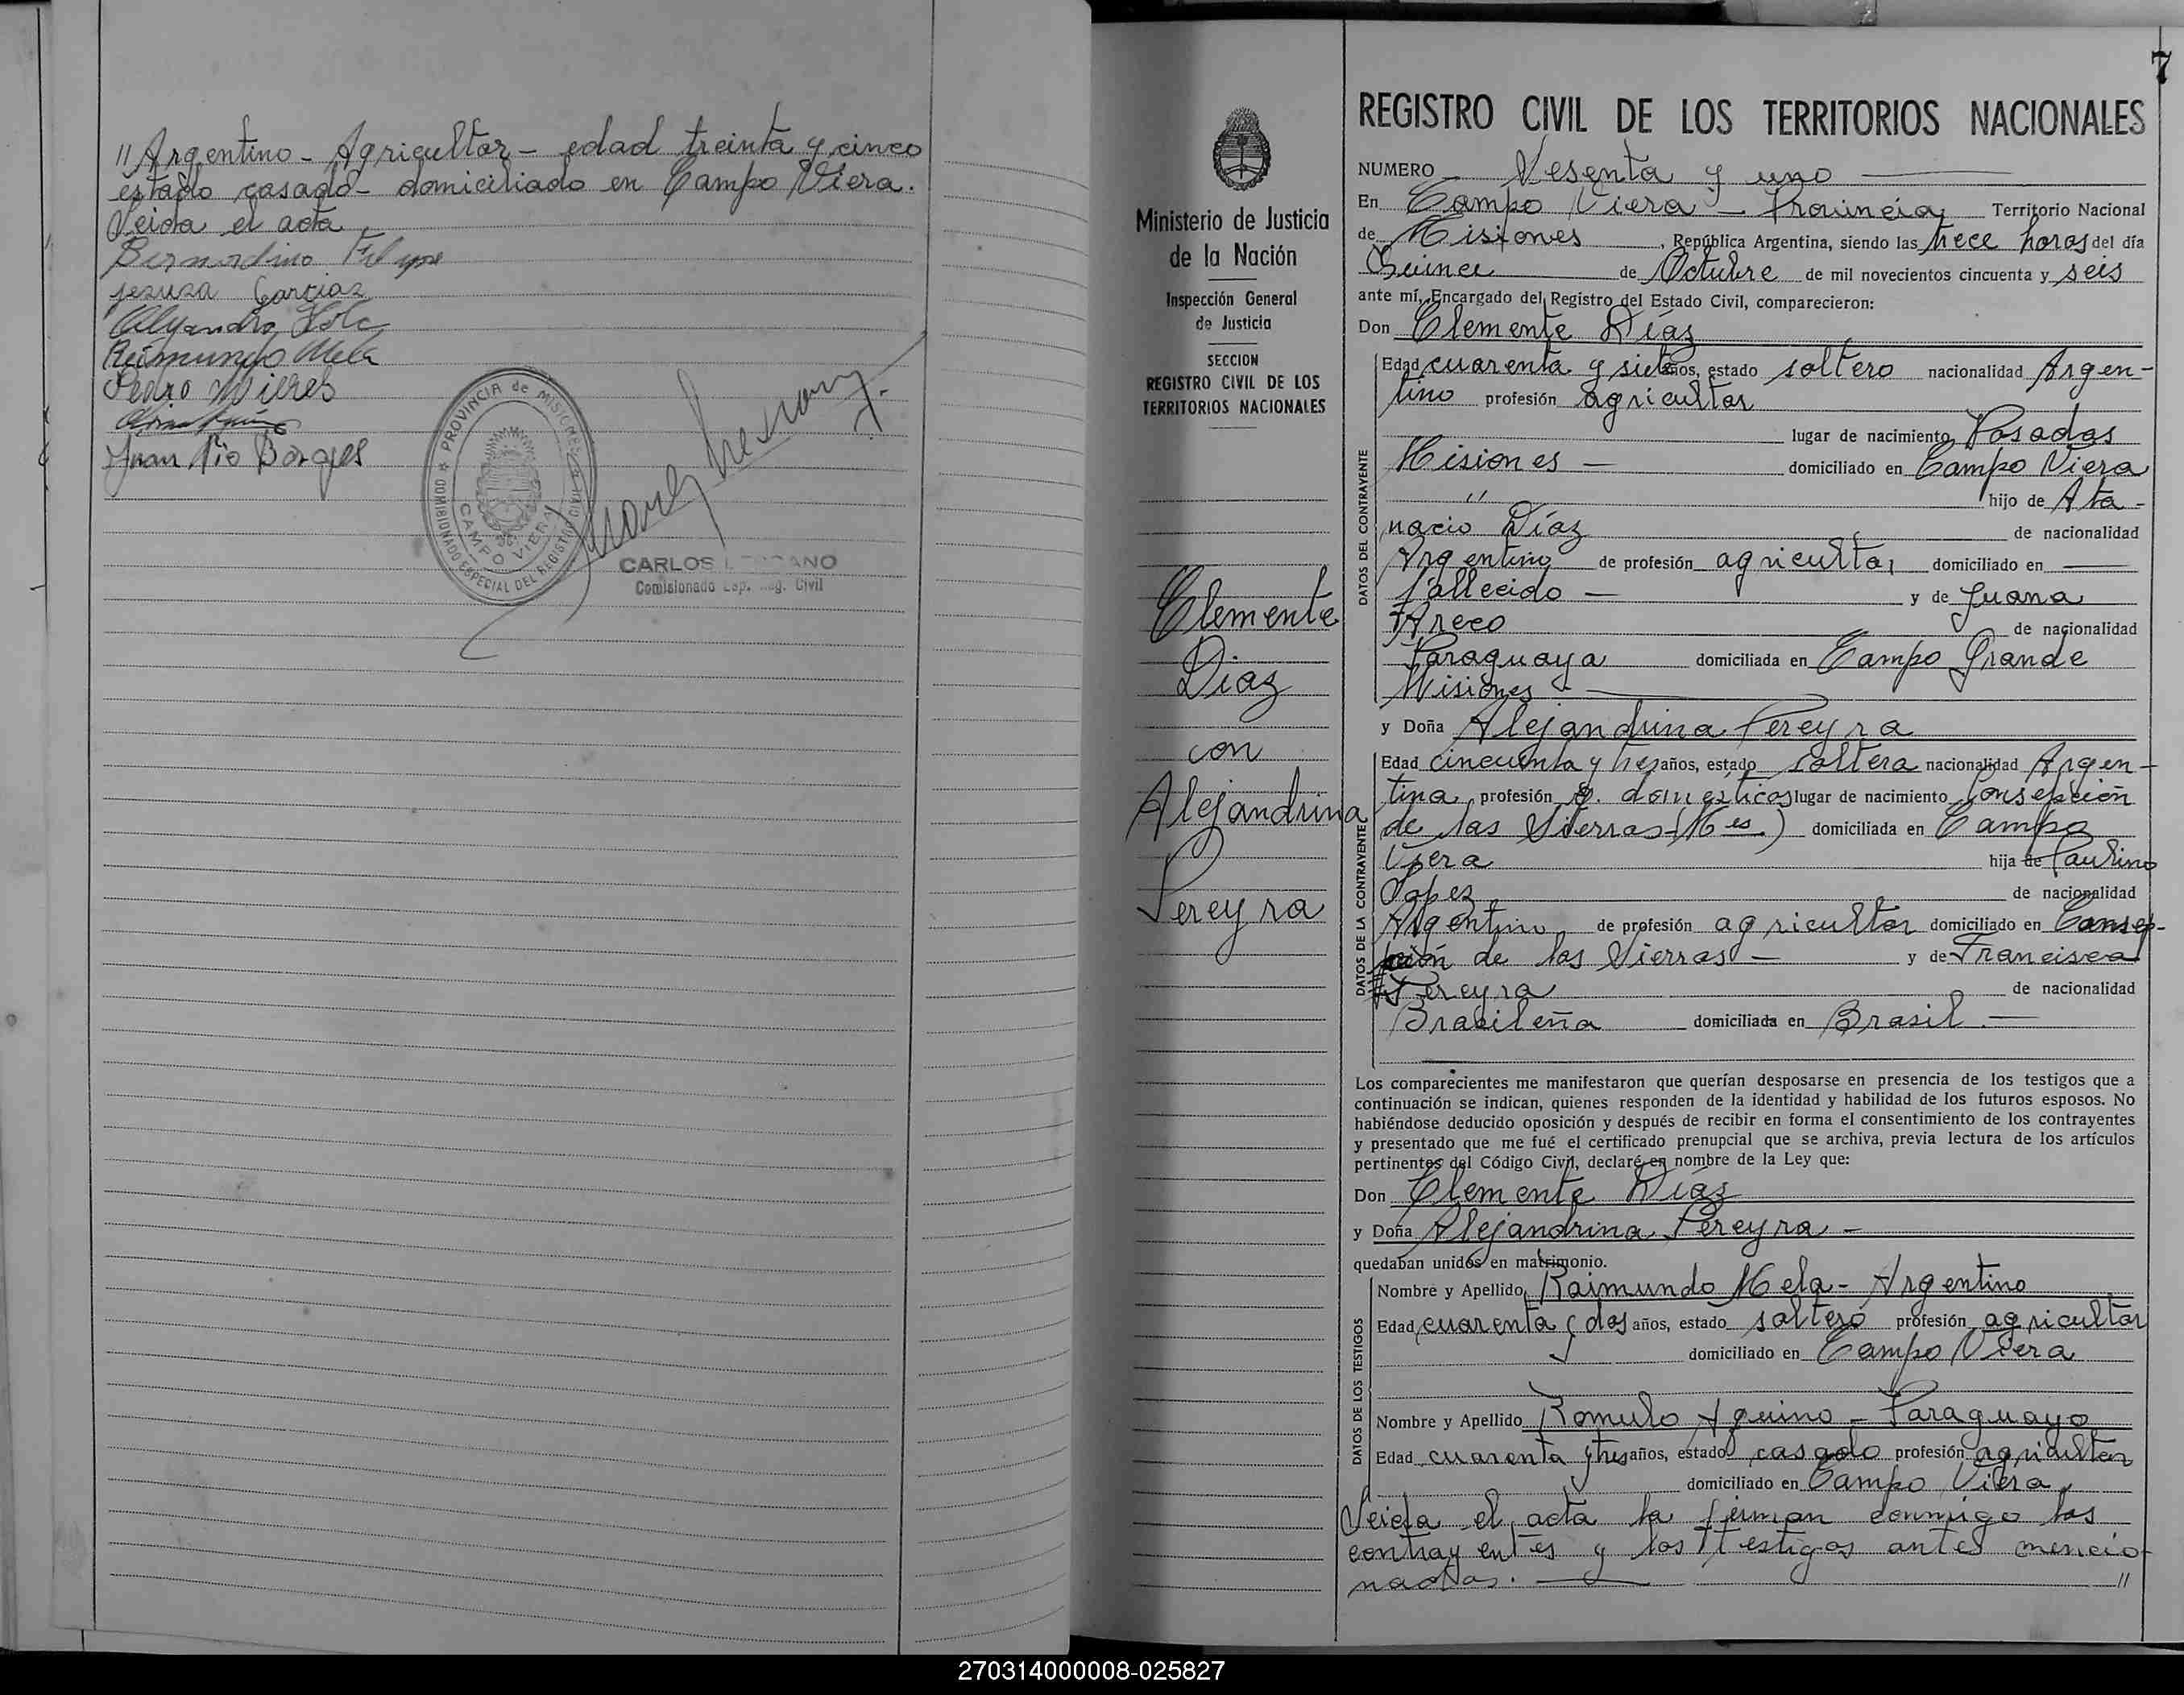 " Argentino - Agricultor - edad treinta y cinco
estado casado - domiciliado en Campo Viera.
Leida el acta
Bernardino
jesusa Garciaz
Reimundo Mela
Pedro
Juan Pio Borges
PROVINCIA de MISIONES
COMISIONADO ESPECIAL DEL REGISTRO CIVIL
CAMPO VIERA
CARLOS
Comisionado Esp. Reg. Civil
7
Ministerio de Justicia
de la Nación
Inspección General
de Justicia
SECCION
REGISTRO CIVIL DE LOS
TERRITORIOS NACIONALES
Clemente
Diaz
con
Alejandrina
Pereyra
REGISTRO CIVIL DE LOS TERRITORIOS NACIONALES
NUMERO Sesenta y uno
En Campo Viera - Provincia Territorio Nacional
de Misiones, República Argentina, siendo las trece horas del día
Quince de Octubre de mil novecientos cincuenta y seis
ante mí, Encargado del Registro del Estado Civil, comparecieron:
Don Clemente Díaz
DATOS DEL CONTRAYENTE
Edad cuarenta y siete años, estado soltero nacionalidad Argen-
tino profesión agricultor
lugar de nacimiento Posadas
Misiones - domiciliado en Campo Viera
" hijo de Ata-
nacio Díaz de nacionalidad
Argentino de profesión agricultor domiciliado en
fallecido - y de Juana
Areco de nacionalidad
Paraguaya domiciliada en Campo Grande
Misiones -
y Doña Alejandrina Pereyra
DATOS DE LA CONTRAYENTE
Edad cincuenta y tres años, estado soltera nacionalidad Argen-
tina profesión q. domesticos lugar de nacimiento Consepción
de las Sierras (Mes.) domiciliada en Campo
Viera hija de Paulino
Lopez de nacionalidad
Argentino de profesión agricultor domiciliado en Consep-
ción de las Sierras - y de Francisca
Pereyra de nacionalidad
Brasileña domiciliada en Brasil. -
Los comparecientes me manifestaron que querían desposarse en presencia de los testigos que a
continuación se indican, quienes responden de la identidad y habilidad de los futuros esposos. No
habiéndose deducido oposición y después de recibir en forma el consentimiento de los contrayentes
y presentado que me fué el certificado prenupcial que se archiva, previa lectura de los artículos
pertinentes del Código Civil, declaré en nombre de la Ley que:
Don Clemente Díaz
y Doña Alejandrina Pereyra -
quedaban unidos en matrimonio.
DATOS DE LOS TESTIGOS
Nombre y Apellido Raimundo Mela - Argentino
Edad cuarenta y dos años, estado soltero profesión agricultor
domiciliado en Campo Viera
Nombre y Apellido Romulo Aquino - Paraguayo
Edad cuarenta y tres años, estado casado profesión agricultor
domiciliado en Campo Viera
Leida el acta la firman conmigo los
contrayentes y los testigos antes mencio-
nados. - "
270314000008-025827